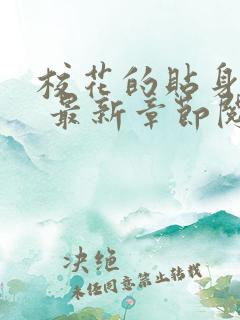 校花的贴身
最新章节阅
决绝
未经同意禁止转载